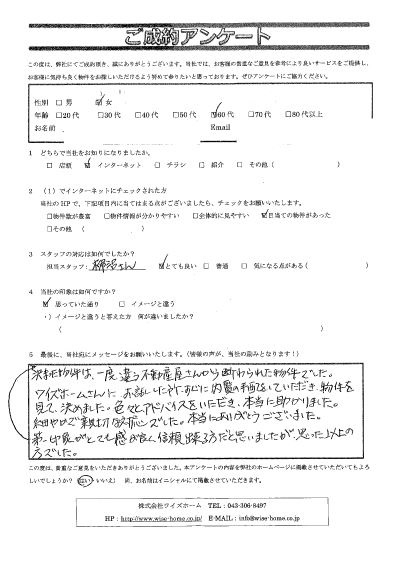 ご成約アンケート
この度は、弊社にてご成約頂き、誠にありがとうございます。当社では、お客様の貴重なご意見を参考により良いサービスをご提供し、
お客様に気持ち良く物件をお探しいただけるよう努めて参りたいと思っております。ぜひアンケートにご協力ください。
性別 □男 ☑女
年齢 □20代 □30代 □40代 □50代 ☑60代 □70代 □80代以上
お名前 Email
1 どちらで当社をお知りになりましたか。
□ 店頭 ☑ インターネット □ チラシ □ 紹介 □ その他( )
2 (1)でインターネットにチェックされた方
当社のHPで、下記項目内に当てはまる点がございましたら、チェックをお願いいたします。
□物件数が豊富 □物件情報が分かりやすい □全体的に見やすい ☑目当ての物件があった
□その他( )
3 スタッフの対応は如何でしたか?
担当スタッフ: 柳沼さん ☑とても良い □ 普通 □ 気になる点がある( )
4 当社の印象は如何ですか?
☑ 思っていた通り □ イメージと違う
・)イメージと違うと答えた方 何が違いましたか?
( )
5 最後に、当社宛にメッセージをお願いいたします。(皆様の声が、当社の励みとなります!)
決めた物件は、一度、違う不動産屋さんから断わられた物件でした。
ワイズホームさんに お話しいた所すぐに内覧の手配をしていただき、物件を
見て、決めました。色々とアドバイスをいただき、本当に助かりました。
細やかで親切な対応でした。本当にありがとうございました。
第一印象がとても感が良く、信頼出来る方だと思いましたが、思った以上の
方でした。
この度は、貴重なご意見をいただきありがとうございました。本アンケートの内容を弊社のホームページに掲載させていただいてもよろ
しいでしょうか?(はい・いいえ) 尚、お名前はイニシャルにて掲載させていただきます。
株式会社ワイズホーム TEL:043-306-8497
HP:http://www.wise-home.co.jp E-MAIL:info@wise-home.co.jp